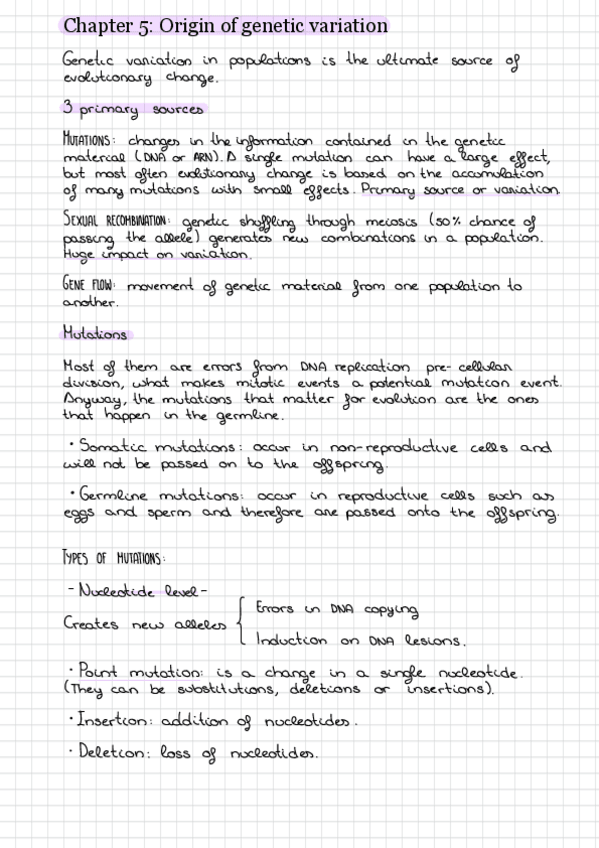 Chapter 5: Origin of genetic variation
Genetic variation in populations is the ultimate source of
evolutionary change.
3 primary sources
MUTATIONS: changes in the information contained in the genetic
material (DNA or ARN). A single mutation can have a large effect,
but most often evolutionary change is based on the accumulation
of many mutations with small effects. Primary source or variation.
SEXUAL RECOMBINATION: genetic shuffling through meiosis (50% chance of
passing the allele) generates new combinations in a population.
Huge impact on variation.
GENE FLOW: movement of genetic material from one population to
another.
Mutations
Most of them are errors from DNA replication pre-cellular
division, what makes mitotic events a potential mutation event.
Anyway, the mutations that matter for evolution are the ones
that happen in the germline.
· Somatic mutations: occur in non-reproductive cells and
will not be passed on to the offspring.
· Germline mutations: occur in reproductive cells such as
eggs and sperm and therefore are passed onto the offspring.
TYPES OF MUTATIONS:
- Nucleotide level -
Creates new alleles { Errors in DNA copying
Induction on DNA lesions.
· Point mutation: is a change in a single nucleotide.
(They can be substitutions, deletions or insertions).
· Insertion: addition of nucleotides.
· Deletion: loss of nucleotides.